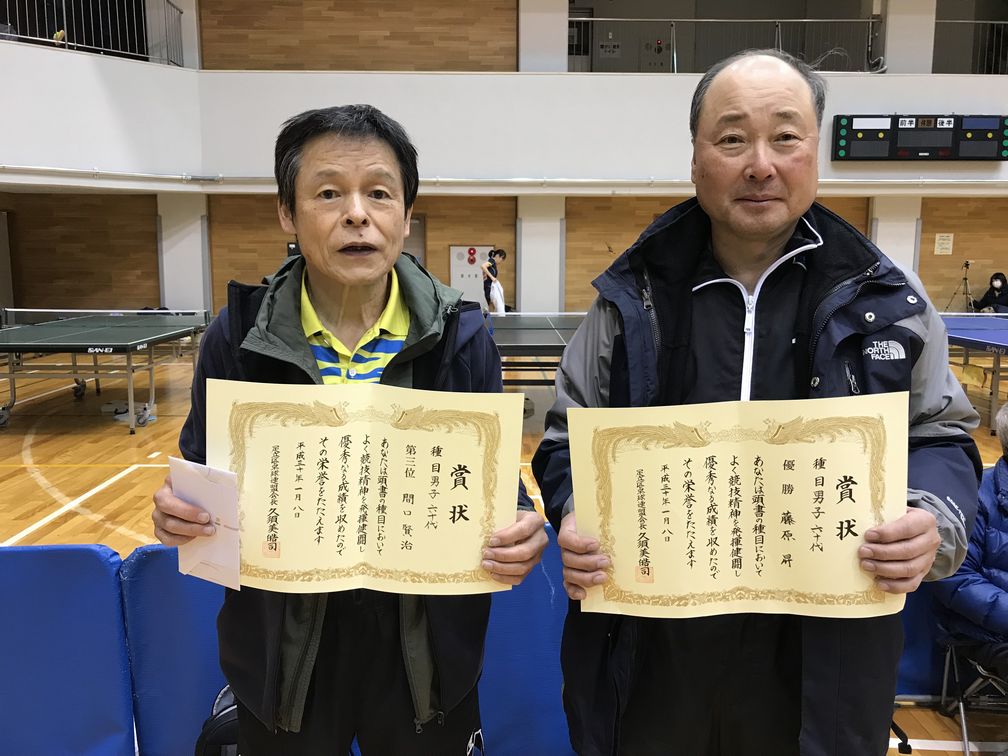 前半
後半
THE
NORTH
FACE
SAN-EI
賞状
種目男子六十代
第三位 間口賢治
あなたは頭書の種目において
よく競技精神を発揮健闘し
優秀なる成績を収めたので
その栄誉をたたえます
平成三十年一月八日
足立区卓球連盟会長 久須美皓司
賞状
種目男子六十代
優勝 藤原昇
あなたは頭書の種目において
よく競技精神を発揮健闘し
優秀なる成績を収めたので
その栄誉をたたえます
平成三十年一月八日
足立区卓球連盟会長 久須美皓司